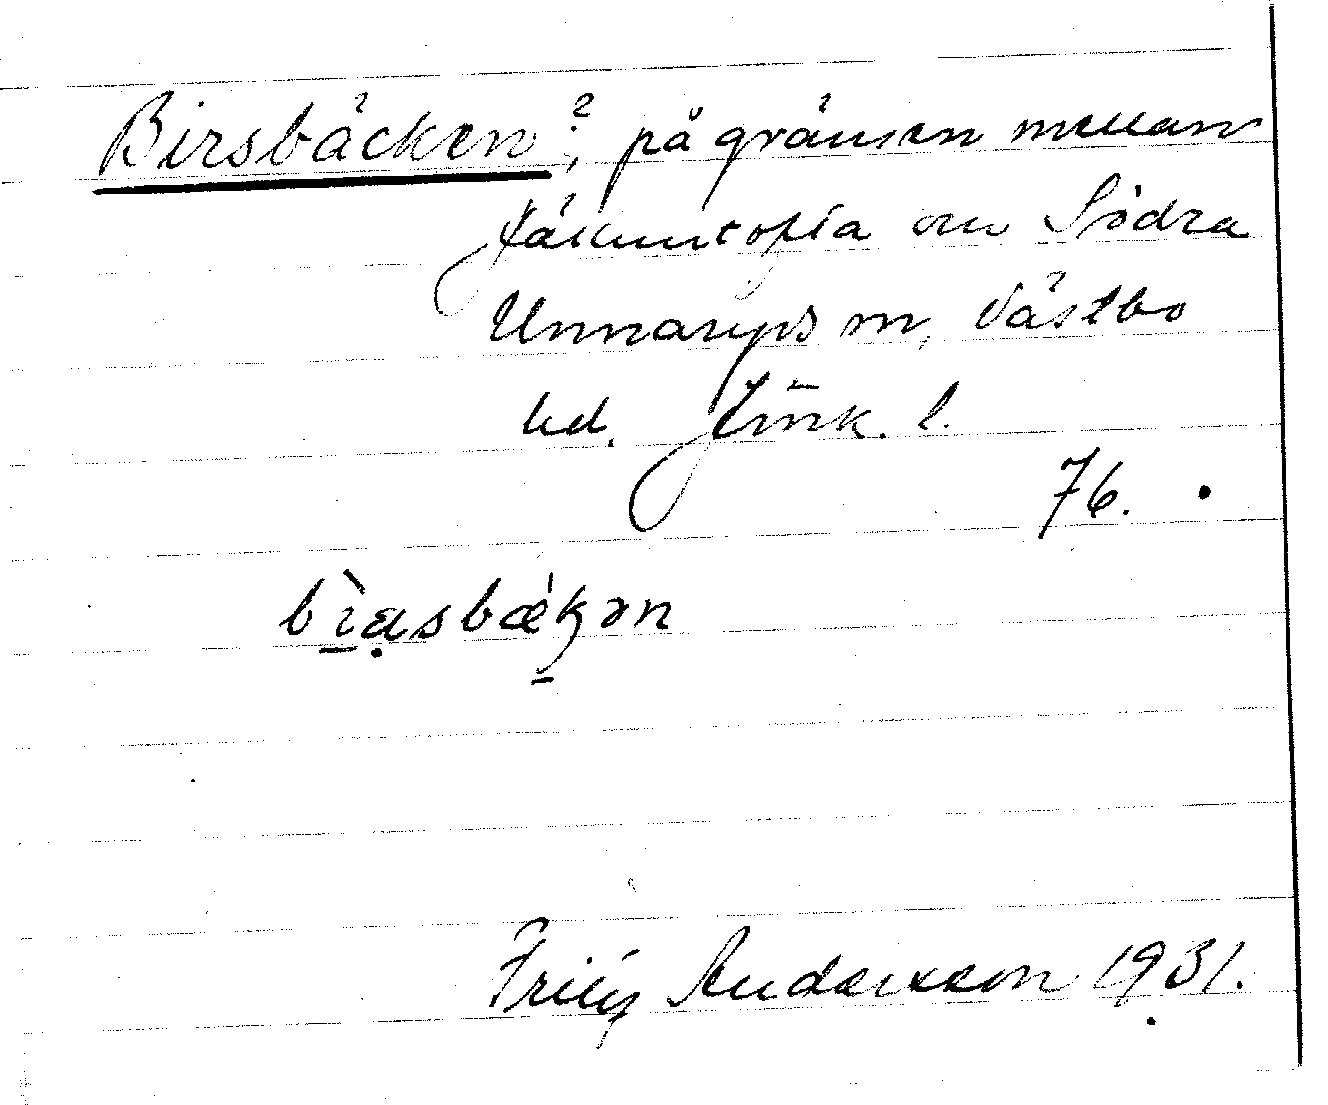 Birsbäcken?, på gränsen mellan
Jälluntofta och Södra
Unnaryds sn, Västbo
hd. Jönk. l.
76.
Fritz Andersson 1931.